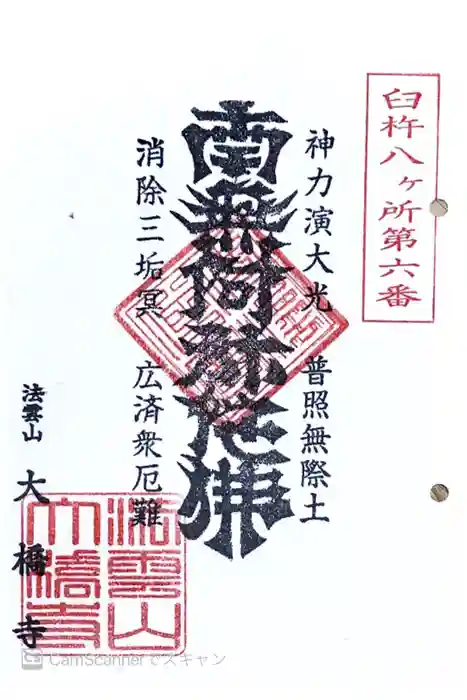 臼杵八ヶ所第六番
神力演大光　普照無際土
南無阿弥陀佛
消除三垢冥　広済衆厄難
法雲山
大橋寺
法雲山
大橋寺
CS CamScannerでスキャン